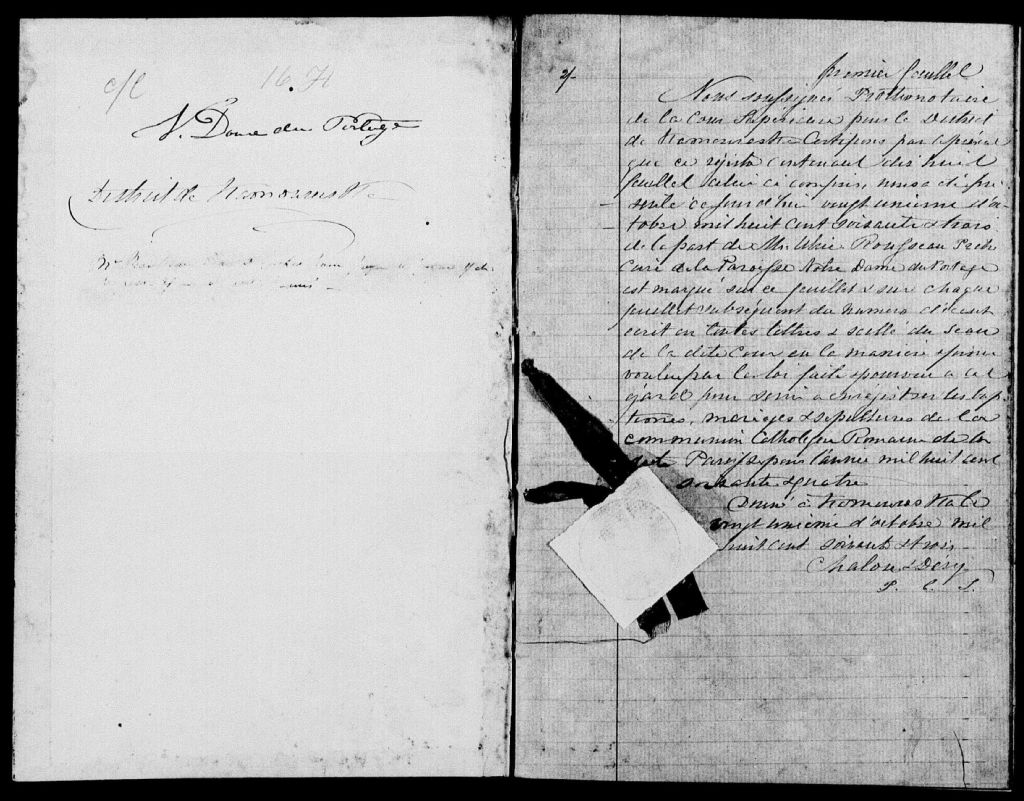 c/c 16.71
N. Dame du Portage
District de Kamouraska
2/-
premier feuillet
Nous soussignés Protonotaire
de la Cour Supérieure pour le District
de Kamouraska Certifions par le présent
que ce régistre contenant dix huit
feuillet celui ci compris, nous a été pré
senté ce jourd'hui vingt unieme d'oc
tobre mil huit cent soixante & trois
de la part de Mr. Rousseau Ptre
Curé de la Paroisse Notre Dame du Portage
est marqué sur ce feuillet & sur chaque
feuillet subséquent du numero
écrit en toutes lettres & scellé du sceau
de la dite Cour en la manière
voulue par la loi faite & pourvue a cet
égard pour servir a enrégistrer les bap
têmes, mariages & sépultures de la
communion Catholique Romaine de la
dite Paroisse pour l'année mil huit cent
soixante & quatre
Donné à Kamouraska le
vingt unieme d'octobre mil
huit cent soixante & trois
Chaloux & Déry
P. C. S.